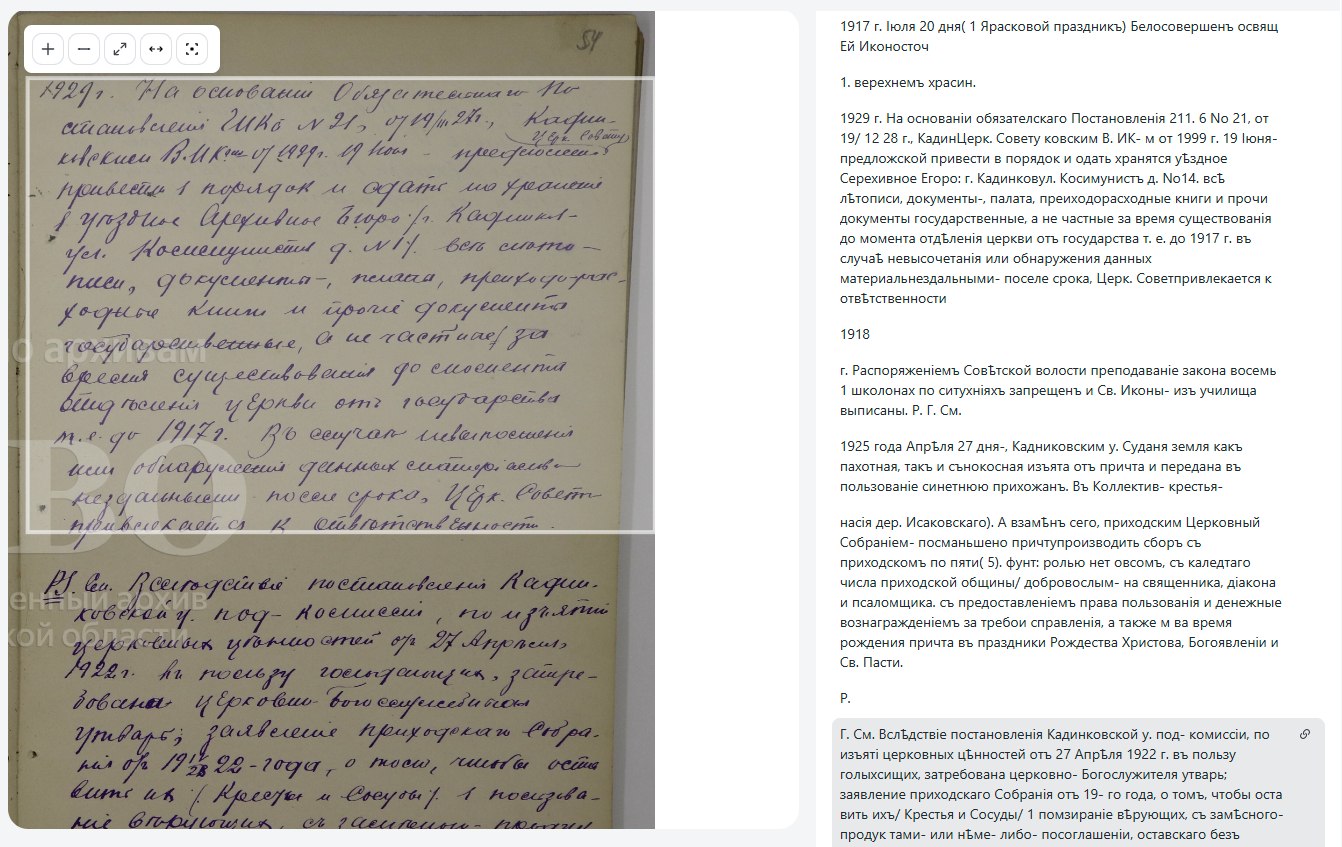 54
1929 г. На основании Обязательнаго По
становленія ЦИКа № 21, от 19/III 27 г., Кадни-
Церк. Совету
ковским В.ИК-м от 1929 г. 19 Іюня - предложено
привести в порядок и сдать на храненіе
в уездное Архивное Бюро /г. Кадников-
ул. Коммунистов д. № 14. всѣ
писи, документы-, приходо-рас-
ходные книги и прочіе документы
государственные, а не частные/ за
время существованія до момента
отдѣленія церкви отъ государства
т. е. до 1917 г. Въ случаѣ
или обнаруженія данных матеріалов-
несданными после срока, Церк. Советъ
привлекается к отвѣтственности.
P.S. См. Вслѣдствіе постановленія Кадни-
ковской у. под- комиссіи, по изъятію
церковных цѣнностей от 27 Апрѣля
1922 г. въ пользу голодающих, затре-
бована церковно-Богослужебная
утварь; заявленіе приходскаго Собра-
нія от 1922-года, о томъ, чтобы оста
вить их /Кресты и Сосуды/ в пользова-
ніе вѣрующих,
о архивам
ВО
енный архив
кой области
1917 г. Іюля 20 дня( 1 Ярасковой праздникъ) Белосовершенъ освящ
Ей Иконосточ
1. верехнемъ храсин.
1929 г. На основании обязателскаго Постановленія 211. 6 No 21, от
19/ 12 28 г., КадинЦерк. Совету ковским В. ИК- м от 1999 г. 19 Іюня-
предложской привести в порядок и одать хранятся уѣздное
Серехивное Егоро: г. Кадинковул. Косимунистъ д. No14. всѣ
лѣтописи, документы-, палата, преиходорасходные книги и прочи
документы государственные, а не частные за время существованія
до момента отдѣленія церкви отъ государства т. е. до 1917 г. въ
случаѣ невысочетанія или обнаружения данных
материальнездальными- поселе срока, Церк. Советпривлекается к
отвѣтственности
1918
г. Распоряженіемъ Совѣтской волости преподаваніе закона восемь
1 школонах по ситухніяхъ запрещенъ и Св. Иконы- изъ училища
выписаны. Р. Г. См.
1925 года Апрѣля 27 дня-, Кадниковским у. Суданя земля какъ
пахотная, такъ и сънокосная изъята отъ причта и передана въ
пользованіе синетнюю прихожанъ. Въ Коллектив- крестья-
насія дер. Исаковскаго). А взамѣнъ сего, приходским Церковный
Собраніем- посманьшено причтупроизводить сборъ съ
приходскомъ по пяти( 5). фунт: ролью нет овсомъ, съ каледтаго
числа приходской общины/ добровослым- на священника, діакона
и псаломщика. съ предоставленіемъ права пользования и денежные
вознагражденіемъ за требои справленія, а также м ва время
рождения причта въ праздники Рождества Христова, Богоявленіи и
Св. Пасти.
Р.
Г. См. Вслѣдствіе постановленія Кадинковской у. под- комиссіи, по
изъяті церковных цѣнностей отъ 27 Апрѣля 1922 г. въ пользу
голыхсищих, затребована церковно- Богослужителя утварь;
заявление приходскаго Собранія отъ 19- го года, о томъ, чтобы оста
вить ихъ/ Крестья и Сосуды/ 1 помзираніе вѣрующих, съ замѣсного-
продук тами- или нѣме- либо- посоглашеніи, оставскаго безъ